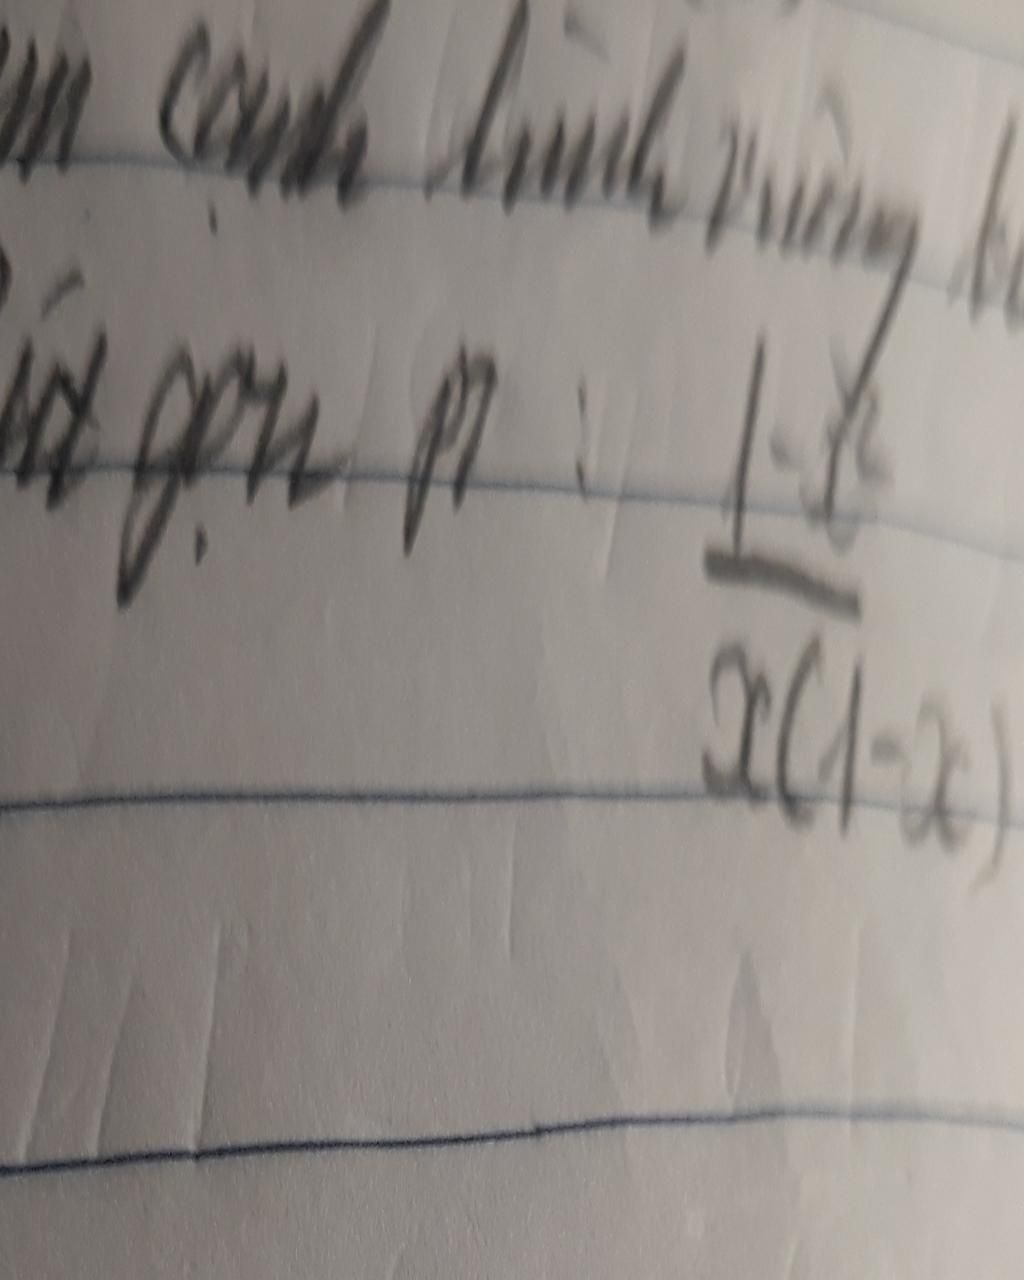 cạnh hình vuông
gọn p : 1-x²
x(1-x)